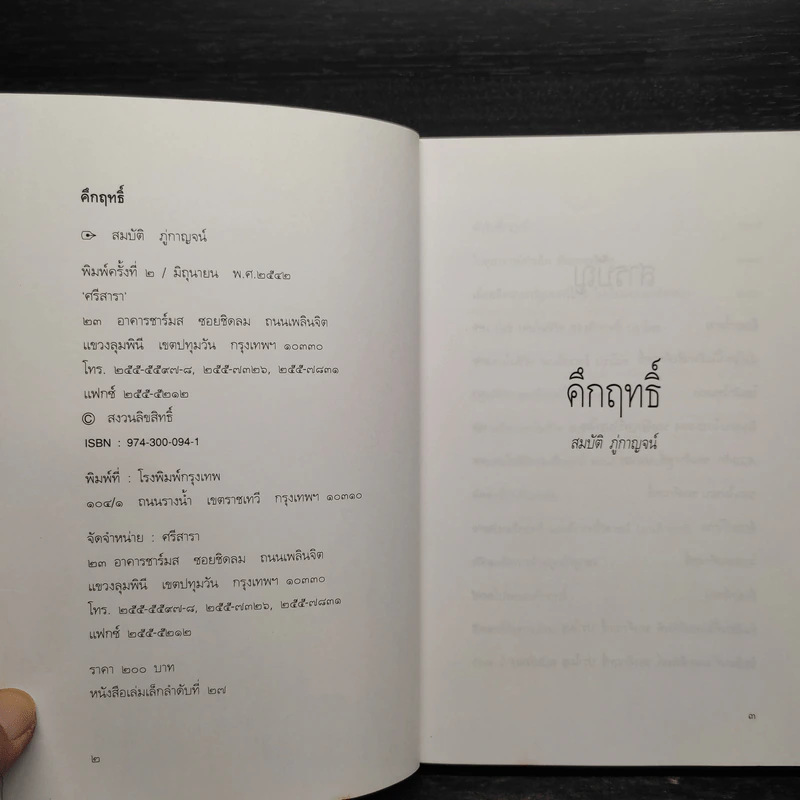 คึกฤทธิ์
สมบัติ ภู่กาญจน์
พิมพ์ครั้งที่ ๒ / มิถุนายน พ.ศ.๒๕๔๒
'ศรีสารา'
๒๓ อาคารชาร์มส ซอยชิดลม ถนนเพลินจิต
แขวงลุมพินี เขตปทุมวัน กรุงเทพฯ ๑๐๓๓๐
โทร. ๒๕๕-๕๕๙๗-๘, ๒๕๕-๗๓๒๖, ๒๕๕-๗๘๓๑
แฟกซ์ ๒๕๕-๕๒๑๒
© สงวนลิขสิทธิ์
ISBN : 974-300-094-1
พิมพ์ที่ : โรงพิมพ์กรุงเทพ
๑๐๔/๑ ถนนรางน้ำ เขตราชเทวี กรุงเทพฯ ๑๐๓๑๐
จัดจำหน่าย : ศรีสารา
๒๓ อาคารชาร์มส ซอยชิดลม ถนนเพลินจิต
แขวงลุมพินี เขตปทุมวัน กรุงเทพฯ ๑๐๓๓๐
โทร. ๒๕๕-๕๕๙๗-๘, ๒๕๕-๗๓๒๖, ๒๕๕-๗๘๓๑
แฟกซ์ ๒๕๕-๕๒๑๒
ราคา ๒๐๐ บาท
หนังสือเล่มเล็กลำดับที่ ๒๗
๒
คึกฤทธิ์
สมบัติ ภู่กาญจน์
๓